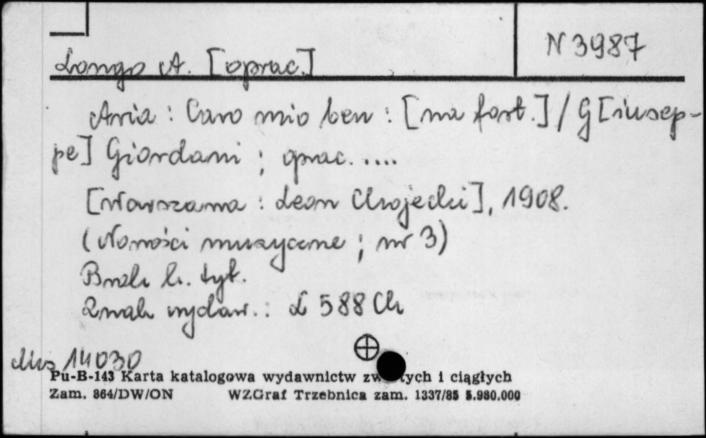 N 3987
Longo A. [oprac.]
Aria : Caro mio ben : [na fort.] / G[iusep-
pe] Giordani ; oprac. ....
[Warszawa : Leon Chojecki], 1908.
(Nowości muzyczne ; nr 3)
Brak k. tyt.
Znak wydaw.: L 588 Ch
Mus 14030
Pu-B-143 Karta katalogowa wydawnictw zw tych i ciągłych
Zam. 864/DW/ON WZGraf Trzebnica zam. 1337/85 5.980.000